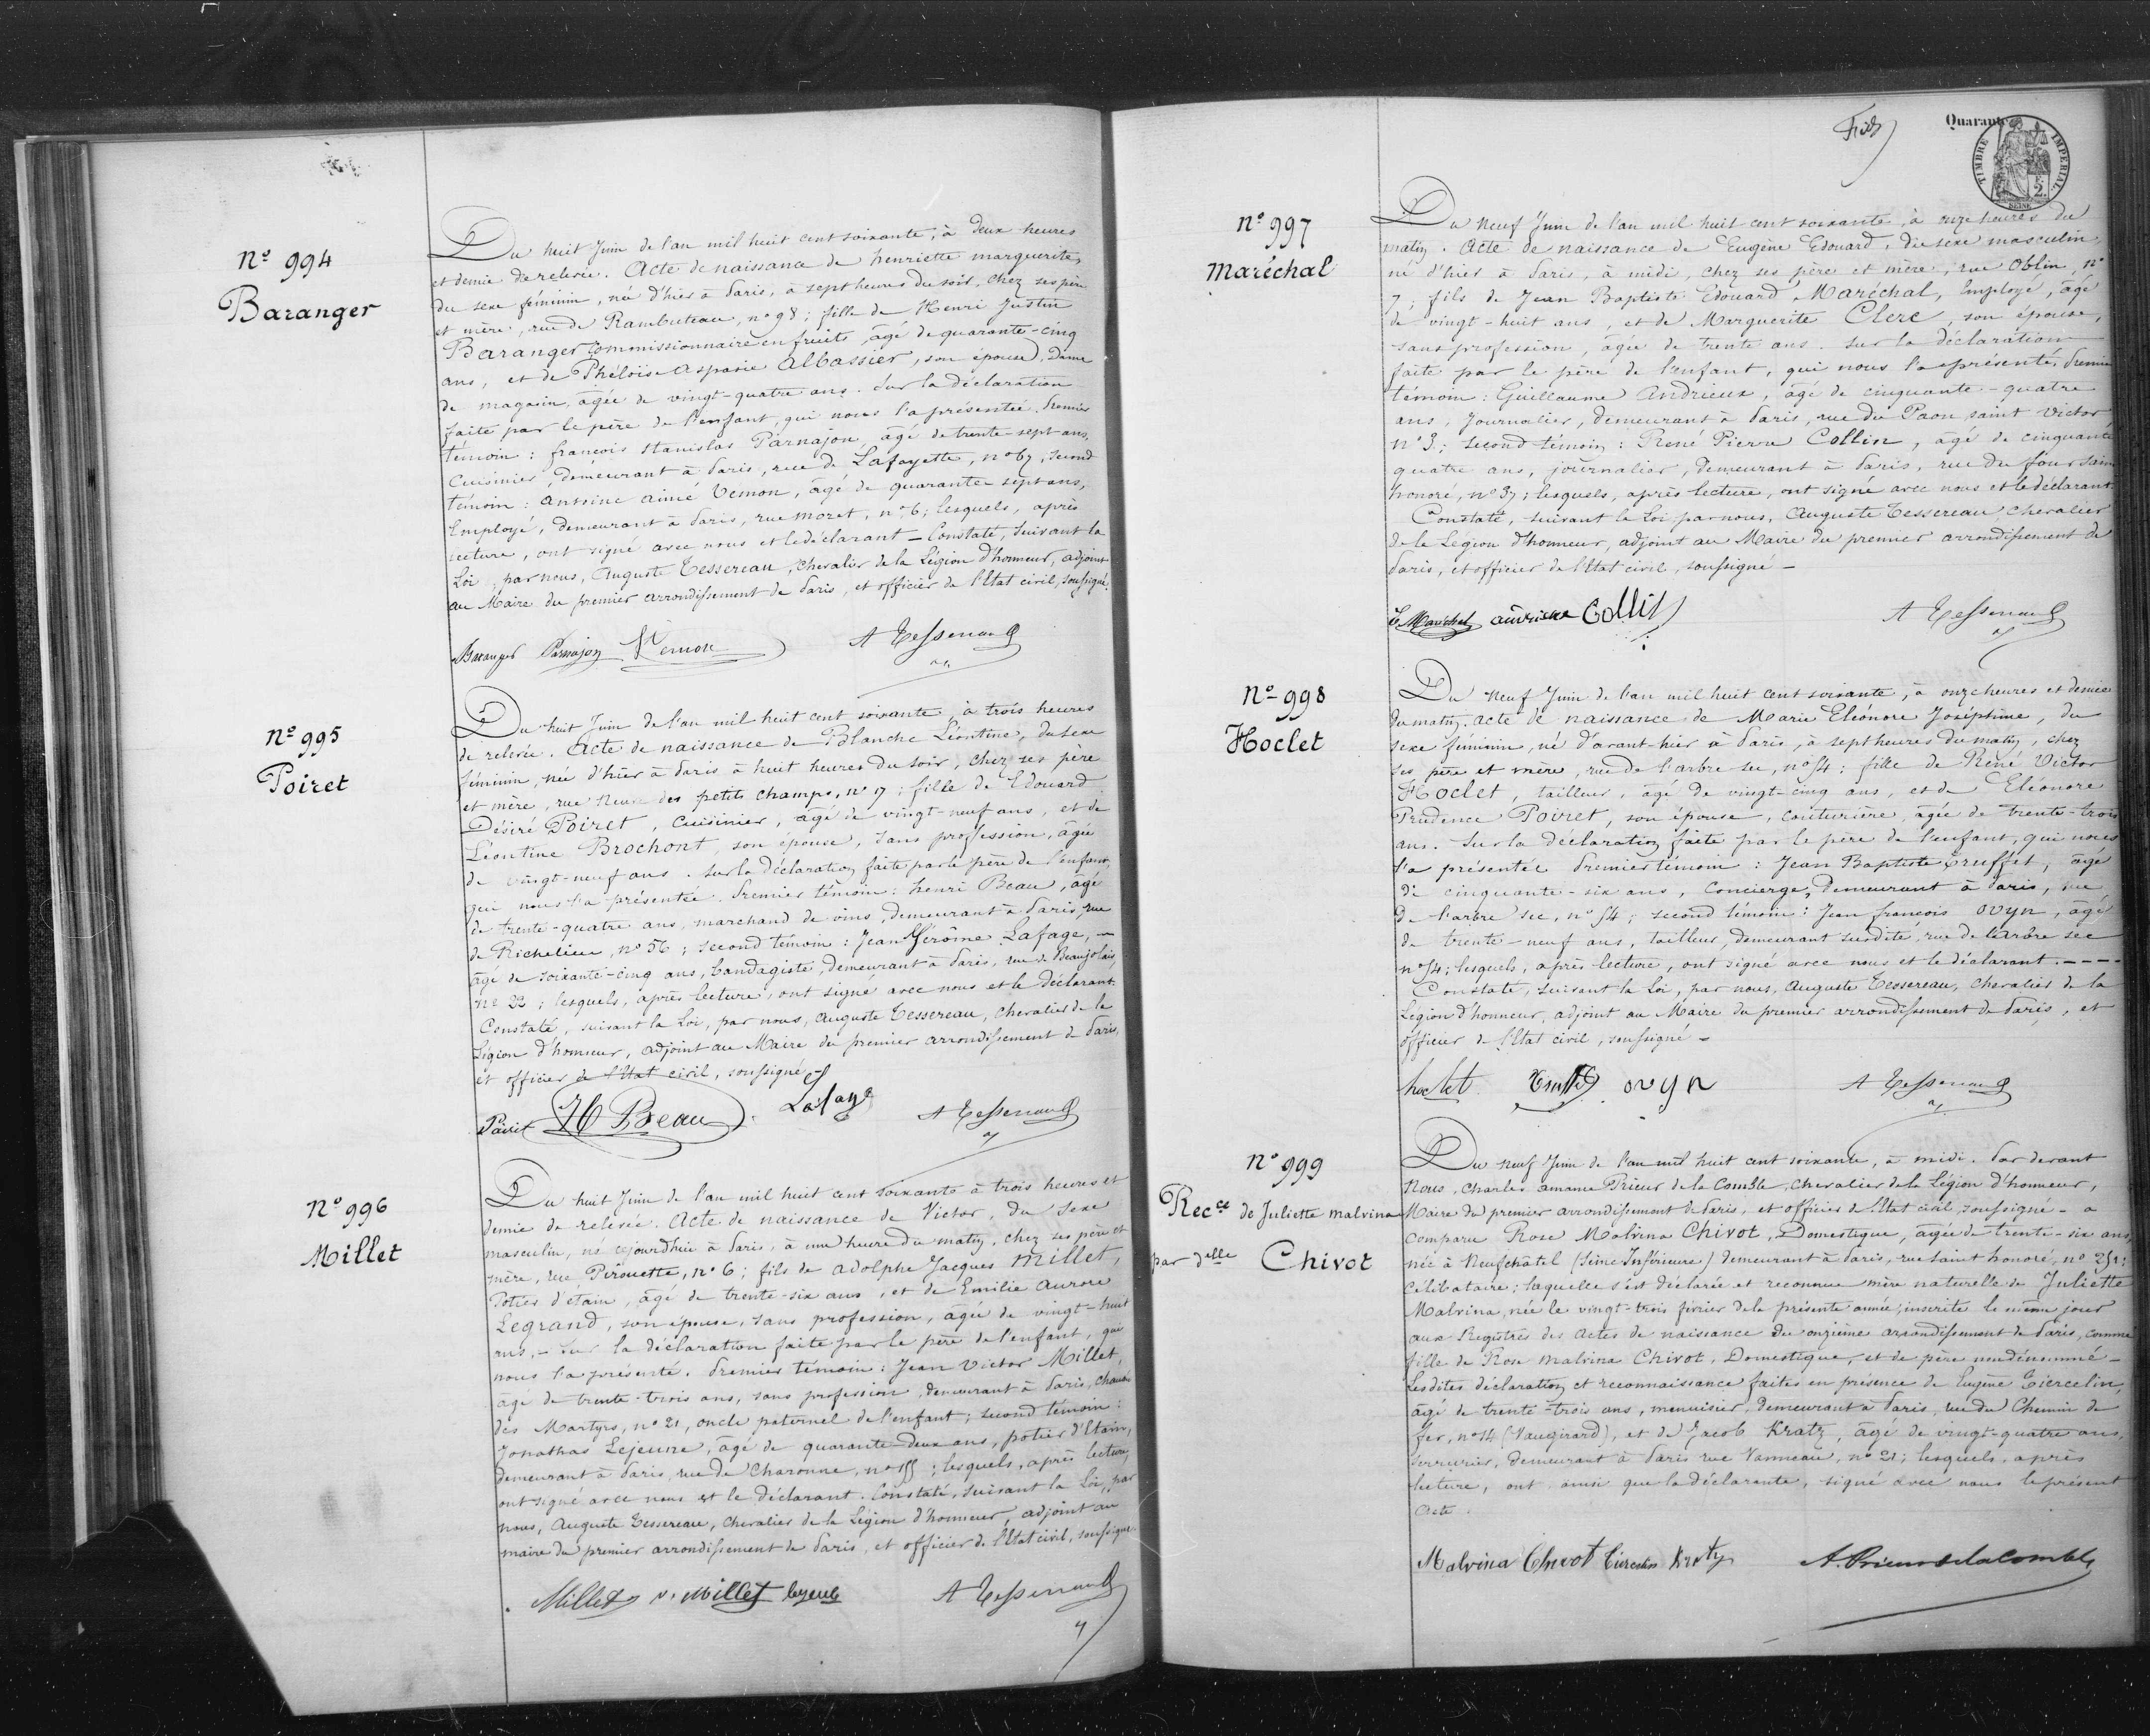 N° 994
Baranger
Du huit Juin de l'an mil huit cent soixante, à deux heures
et demie de relevée. Acte de naissance de henriette marguerite,
du sexe féminin, née d'hier à Paris, à sept heures du soir, chez ses père
et mère, rue de Rambuteau, n° 98; fille de Henri Justin
Baranger commissionnaire en fruits, âgé de quarante-cinq
ans, et de Phéloïse Aspasie Albassier, son épouse, Dame
de magasin, âgée de vingt-quatre ans. Sur la déclaration
faite par le père de l'enfant, qui nous l'a présentée. Premier
témoin: françois stanislas Parnajon, âgé de trente-sept ans,
Cuisinier, demeurant à Paris, rue de Lafayette, n° 67, second
témoin: antoine aimé Vemon, âgé de quarante-sept ans,
Employé, demeurant à Paris, rue moret, n° 6; lesquels, après
lecture, ont signé avec nous et le déclarant - Constaté, Suivant la
Loi, par nous, Auguste Tessereau, chevalier de la Légion d'honneur, adjoint
au Maire du premier arrondissement de Paris, et officier de l'Etat civil, soussigné.
Baranger Parnajon Vernon A Tessereau
N° 995
Poiret
Du huit Juin de l'an mil huit cent soixante, à trois heures
de relevée. Acte de naissance de Blanche Léontine, du sexe
féminin, née d'hier à Paris à huit heures du soir, chez ses père
et mère, rue Neuve des petits champs, n° 17; fille de Edouard
Désiré Poiret, Cuisinier, âgé de vingt-neuf ans, et de
Léontine Brochont, son épouse, sans profession, âgée
de vingt-neuf ans. Sur la déclaration faite par le père de l'enfant,
qui nous l'a présentée. Premier témoin: henri Beau, âgé
de trente-quatre ans, marchand de vins, demeurant à Paris, rue
de Richelieu, n° 56; second témoin: Jean Gérôme Lafage,
âgé de soixante-cinq ans, bandagiste, demeurant à Paris, rue de Beaujolais,
n° 22; lesquels, après lecture, ont signé avec nous et le déclarant.
Constaté, suivant la Loi, par nous, Auguste Tessereau, chevalier de la
Légion d'honneur, adjoint au Maire du premier arrondissement de Paris,
et officier de l'Etat civil, soussigné
Poiret H Beau Lafage A Tessereau
N° 996
Millet
Du huit Juin de l'an mil huit cent soixante à trois heures et
demie de relevée. Acte de naissance de Victor, du sexe
masculin, né cejourd'hui à Paris, à une heure du matin, chez ses père et
mère, rue Pirouette, n° 6; fils de adolphe Jacques Millet,
Potier d'étain, âgé de trente-six ans, et de Emilie Aurore
Legrand, son épouse, sans profession, âgée de vingt-huit
ans, - Sur la déclaration faite par le père de l'enfant, qui
nous l'a présenté. Premier témoin: Jean Victor Millet,
âgé de trente-trois ans, sans profession, demeurant à Paris,
des Martyrs, n° 21, oncle paternel de l'enfant; second témoin:
Jonathas Lejeune, âgé de quarante-deux ans, potier d'étain,
demeurant à Paris, rue de Charonne, n° 155; lesquels, après lecture,
ont signé avec nous et le déclarant. Constaté, suivant la Loi, par
nous, Auguste Tessereau, chevalier de la Légion d'honneur, adjoint au
maire du premier arrondissement de Paris, et officier de l'Etat civil, soussigné
Millet v. Millet lejeune A Tessereau
Quarante
TIMBRE IMPERIAL
F. 2.
SEINE
N° 997
Maréchal
Du Neuf Juin de l'an mil huit cent soixante, à onze heures du
matin. Acte de naissance de Eugène Edouard, du sexe masculin,
né d'hier à Paris, à midi, chez ses père et mère, rue Oblin, n°
7; fils de Jean Baptiste Edouard Maréchal, Employé, âgé
de vingt-huit ans, et de Marguerite Clerc, son épouse,
sans profession, âgée de trente ans. sur la déclaration
faite par le père de l'enfant, qui nous l'a présenté. Premier
témoin: Guillaume Andrieux, âgé de cinquante-quatre
ans, Journalier, demeurant à Paris, rue du Paon saint Victor
n° 3; second témoin: René Pierre Collin, âgé de cinquante
quatre ans, journalier, demeurant à Paris, rue du four saint
honoré, n° 37; lesquels, après lecture, ont signé avec nous et le déclarant
Constaté, suivant la Loi par nous, Auguste Tessereau chevalier
de la Légion d'honneur, adjoint au Maire du premier arrondissement de
Paris, et officier de l'Etat civil, soussigné -
E Maréchal andrieux Collin A Tessereau
N° 998
Hoclet
Du Neuf Juin de l'an mil huit cent soixante, à onze heures et demie
du matin. acte de naissance de Marie Eléonore Joséphine, du
sexe féminin, né d'avant-hier à Paris, à sept heures du matin, chez
ses père et mère, rue de l'arbre sec, n° 54; fille de René Victor
Hoclet, tailleur, âgé de vingt-cinq ans, et de Eléonore
Prudence Poiret, son épouse, couturière, âgée de trente-trois
ans. Sur la déclaration faite par le père de l'enfant, qui nous
l'a présentée Premier témoin: Jean Baptiste Truffet, âgé
de cinquante-six ans, Concierge, demeurant à Paris, rue
de l'arbre sec, n° 54; second témoin: Jean françois Ovyn, âgé
de trente-neuf ans, tailleur, demeurant susdite rue de l'arbre sec
n° 54; lesquels, après lecture, ont signé avec nous et le déclarant. - - - -
Constaté, suivant la Loi, par nous, Auguste Tessereau, chevalier de la
Légion d'honneur, adjoint au Maire du premier arrondissement de Paris, et
officier de l'Etat civil, soussigné -
hoclet Truffet ovyn A Tessereau
N° 999
Rec.ce de Juliette malvina
par d.elle Chivot
Du neuf Juin de l'an mil huit cent soixante, à midi. Par devant
Nous, Charles amand Prieur de la Comble, chevalier de la Légion d'honneur,
Maire du premier arrondissement de Paris, et officier de l'Etat civil, soussigné - a
comparu Rose Malvina Chivot, Domestique, âgée de trente-six ans,
née à Neufchâtel (Seine Inférieure) demeurant à Paris, rue saint honoré, n° 251;
Célibataire; laquelle s'est déclarée et reconnue mère naturelle de Juliette
Malvina, née le vingt-trois février de la présente année; inscrite le même jour
aux Registres des actes de naissance du onzième arrondissement de Paris, comme
fille de Rose malvina Chivot, Domestique, et de père non dénommé -
Lesdites déclaration et reconnaissance faites en présence de Eugène Tiercelin,
âgé de trente-trois ans, menuisier, demeurant à Paris, rue du Chemin de
fer, n° 14 (Vaugirard), et de Jacob Kratz, âgé de vingt-quatre ans,
serrurier, demeurant à Paris rue Vanneau, n° 21; lesquels, après
lecture, ont, ainsi que la déclarante, signé avec nous le présent
Acte.
Malvina Chivot Tiercelin Kratz A. Prieur de la Comble